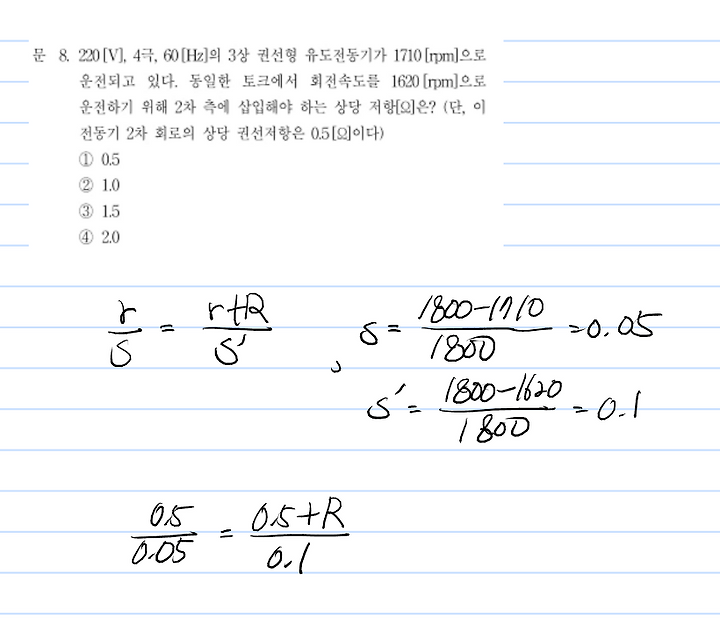 문 8. 220[V], 4극, 60[Hz]의 3상 권선형 유도전동기가 1710[rpm]으로
운전되고 있다. 동일한 토크에서 회전속도를 1620[rpm]으로
운전하기 위해 2차 측에 삽입해야 하는 상당 저항[Ω]은? (단, 이
전동기 2차 회로의 상당 권선저항은 0.5[Ω]이다)
① 0.5
② 1.0
③ 1.5
④ 2.0
r/s = (r+R)/s' , s = (1800-1710)/1800 = 0.05
s' = (1800-1620)/1800 = 0.1
0.5/0.05 = (0.5+R)/0.1